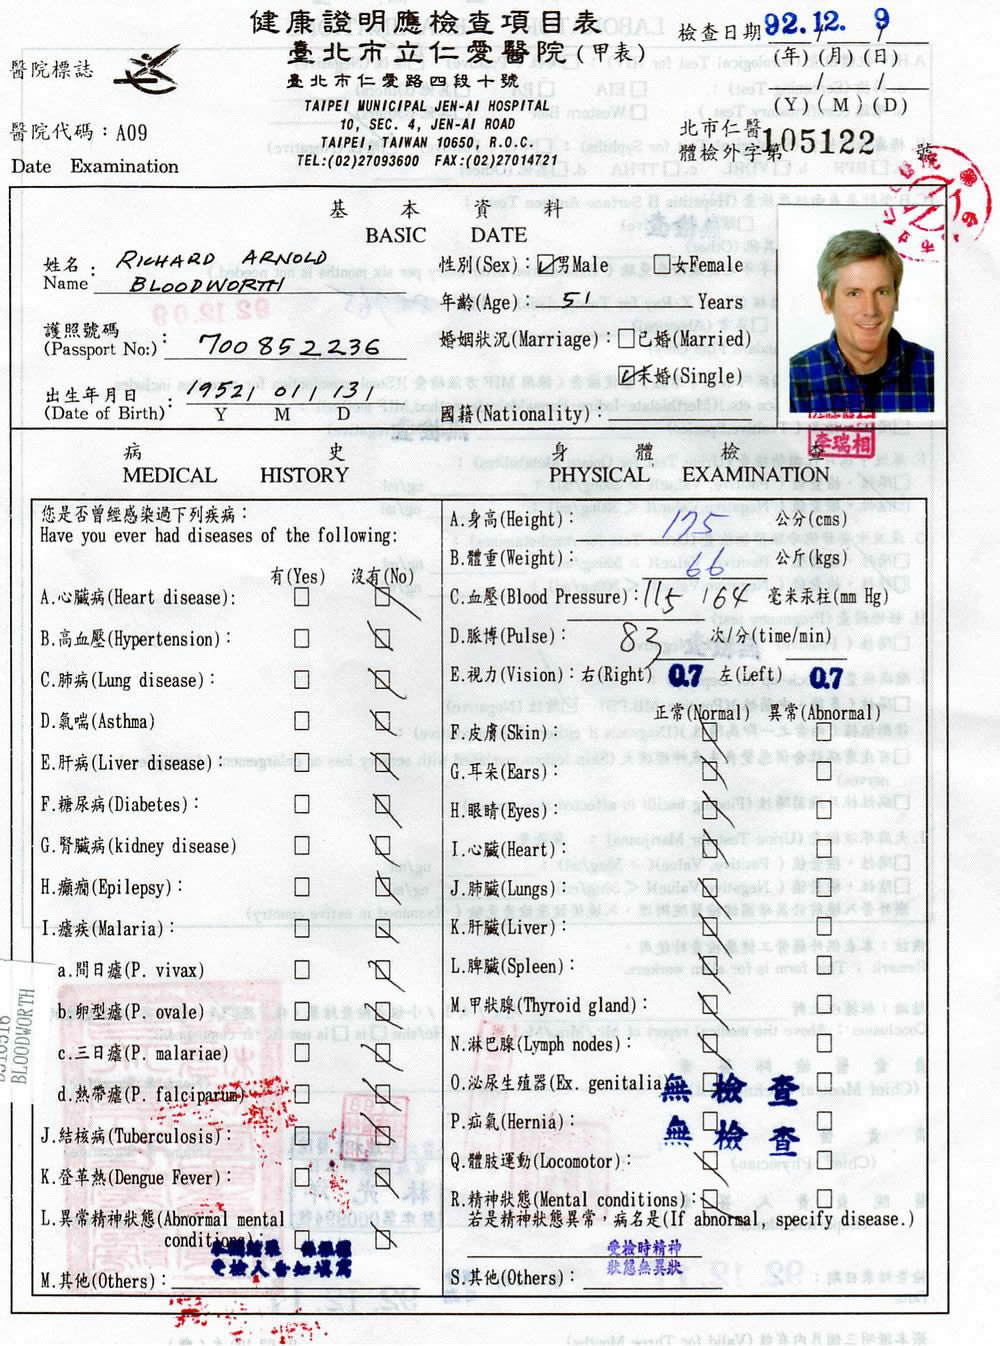 健康證明應檢查項目表
臺北市立仁愛醫院(甲表)
臺北市仁愛路四段十號
TAIPEI MUNICIPAL JEN-AI HOSPITAL
10, SEC. 4, JEN-AI ROAD
TAIPEI, TAIWAN 10650, R.O.C.
TEL:(02)27093600 FAX:(02)27014721
醫院標誌
醫院代碼：A09
Date Examination
檢查日期 92.12. 9
(年)(月)(日)
(Y)(M)(D)
北市仁醫
體檢外字第 105122 號
基本資料
BASIC DATE
姓名： RICHARD ARNOLD
Name BLOODWORTH
護照號碼
(Passport No:)： 700852236
出生年月日
(Date of Birth)： 1952/ 01 / 31
Y M D
性別(Sex)：☑男Male □女Female
年齡(Age)： 51 Years
婚姻狀況(Marriage)：□已婚(Married)
☑未婚(Single)
國籍(Nationality)：
李瑞相
病史
MEDICAL HISTORY
您是否曾經感染過下列疾病：
Have you ever had diseases of the following:
有(Yes) 沒有(No)
A.心臟病(Heart disease):
B.高血壓(Hypertension)：
C.肺病(Lung disease)：
D.氣喘(Asthma)
E.肝病(Liver disease)：
F.糖尿病(Diabetes)：
G.腎臟病(kidney disease)
H.癲癇(Epilepsy)：
I.瘧疾(Malaria)：
a.間日瘧(P. vivax)
b.卵型瘧(P. ovale)
c.三日瘧(P. malariae)
d.熱帶瘧(P. falciparum)
J.結核病(Tuberculosis)：
K.登革熱(Dengue Fever)：
L.異常精神狀態(Abnormal mental
conditions)：
受檢人告知填寫
M.其他(Others)：
身體檢查
PHYSICAL EXAMINATION
A.身高(Height)： 175 公分(cms)
B.體重(Weight)： 66 公斤(kgs)
C.血壓(Blood Pressure)： 115 164 毫米汞柱(mm Hg)
D.脈搏(Pulse)： 83 次/分(time/min)
E.視力(Vision)：右(Right) 0.7 左(Left) 0.7
正常(Normal) 異常(Abnormal)
F.皮膚(Skin)：
G.耳朵(Ears)：
H.眼睛(Eyes)：
I.心臟(Heart)：
J.肺臟(Lungs)：
K.肝臟(Liver)：
L.脾臟(Spleen)：
M.甲狀腺(Thyroid gland)：
N.淋巴腺(Lymph nodes)：
O.泌尿生殖器(Ex. genitalia) 無檢查
P.疝氣(Hernia)： 無檢查
Q.體肢運動(Locomotor)：
R.精神狀態(Mental conditions)：
若是精神狀態異常，病名是(If abnormal, specify disease.)
受檢時精神
狀態無異狀
S.其他(Others)：
BLOODWORTH